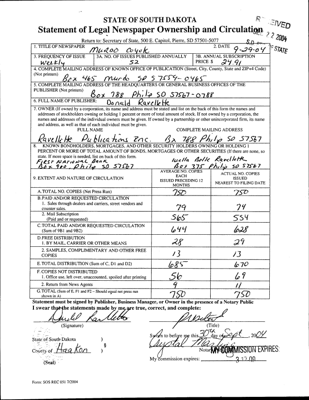 STATE OF SOUTH DAKOTA
Statement of Legal Newspaper Ownership and Circulation
Return to: Secretary of State, 500 E. Capitol, Pierre, SD 57501-5077
1. TITLE OF NEWSPAPER
2. DATE
9-29-04
3. FREQUENCY OF ISSUE
weekly
3A. NO. OF ISSUES PUBLISHED ANNUALLY
52
3B. ANNUAL SUBSCRIPTION PRICE $ 24.91
4. COMPLETE MAILING ADDRESS OF KNOWN OFFICE OF PUBLICATION (Street, City, County, State and ZIP+4 Code)
(Not printers)
Box 465 Murdo SD 57559-0465
5. COMPLETE MAILING ADDRESS OF THE HEADQUARTERS OR GENERAL BUSINESS OFFICES OF THE
PUBLISHER (Not printer)
Box 788 Philip SD 57567-0788
6. FULL NAME OF PUBLISHER:
Donald Ravellette
7. OWNER (If owned by a corporation, its name and address must be stated and list on the back of this form the names and
addresses of stockholders owning or holding 1 percent or more of total amount of stock. If not owned by a corporation, the
names and addresses of the individual owners must be given. If owned by a partnership or other unincorporated firm, its name
and address, as well as that of each individual must be given.
FULL NAME
COMPLETE MAILING ADDRESS
Ravellette Publications Inc.
Box 788 Philip SD 57567
8. KNOWN BONDHOLDERS, MORTGAGES, AND OTHER SECURITY HOLDERS OWNING OR HOLDING 1
PERCENT OR MORE TOTAL AMOUNT OF BONDS, MORTGAGES OR OTHER SECURITIES (If there are none, so
state. If more space is needed, list on back of this form.
First National Bank
Philip SD 57567
Box 375 Philip SD 57567
9. EXTENT AND NATURE OF CIRCULATION
AVERAGE NO. COPIES EACH ISSUED PRECEDING 12 MONTHS
ACTUAL NO. COPIES ISSUED NEAREST TO FILING DATE
A. TOTAL NO. COPIES (Net Press Run)
750
750
B. PAID AND/OR REQUESTED CIRCULATION
1. Sales through dealers and carriers, street vendors and
counter sales.
79
74
2. Mail Subscription
(Paid and or requested)
565
554
C. TOTAL PAID AND/OR REQUESTED CIRCULATION
(Sum of 9B1 and 9B2)
644
628
D. FREE DISTRIBUTION
1. BY MAIL, CARRIER OR OTHER MEANS
28
29
2. SAMPLES, COMPLIMENTARY AND OTHER FREE
COPIES
13
13
E. TOTAL DISTRIBUTION (Sum of C, D1 and D2)
685
670
F. COPIES NOT DISTRIBUTED
1. Office use, left over, unaccounted, spoiled after printing
56
69
2. Return from News Agents
9
11
G. TOTAL (Sum of E, F1 and F2 - Should equal net press run
shown in A)
750
750
Statement must be signed by Publisher, Business Manager, or Owner in the presence of a Notary Public
I swear that the statements made by me are true, correct, and complete:
(Signature)
(Title)
State of South Dakota )
County of Haakon )
(Seal)
Sworn to before me this 30th day of Sept 2004
MY COMMISSION EXPIRES
My commission expires:
Form: SOS REC 051 7/2004